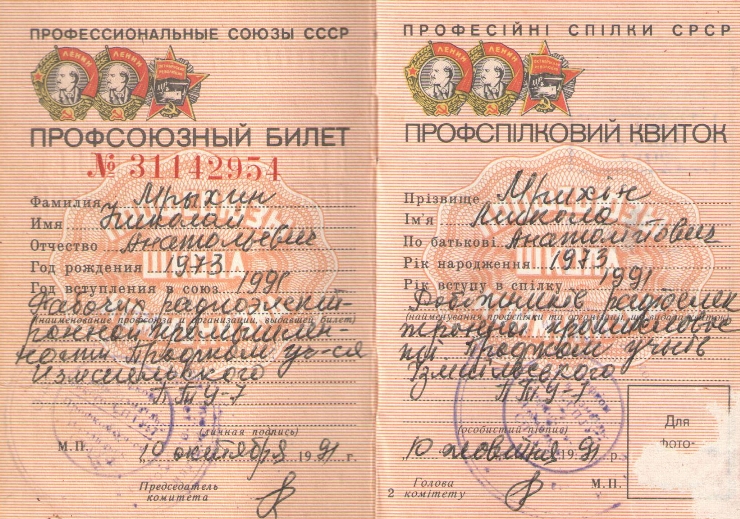 ПРОФЕССИОНАЛЬНЫЕ СОЮЗЫ СССР
ПРОФСОЮЗНЫЙ БИЛЕТ
№ 31142954
Фамилия Мрыхин
Имя Николай
Отчество Анатольевич
Год рождения 1973
Год вступления в союз 1991
Рабочих радиоэлект-
(наименование профсоюза и организации, выдавшей билет)
ронной промышлен-
ности Профком уч-ся
Измаильского
ПТУ-7
(личная подпись)
М.П. 10 октября 1991 г.
Председатель
комитета
ПРОФЕСІЙНІ СПІЛКИ СРСР
ПРОФСПІЛКОВИЙ КВИТОК
Прізвище Мрихін
Ім'я Микола
По батькові Анатолійович
Рік народження 1973
Рік вступу в спілку 1991
Робітників радіоелек
(найменування профспілки та організації, що видала квиток)
тронної промислово
сті Профком учнів
Ізмаїльського
ПТУ-7
(особистий підпис)
10 жовтня 1991 р.
Для
фото-
М.П.
Голова
комітету
2